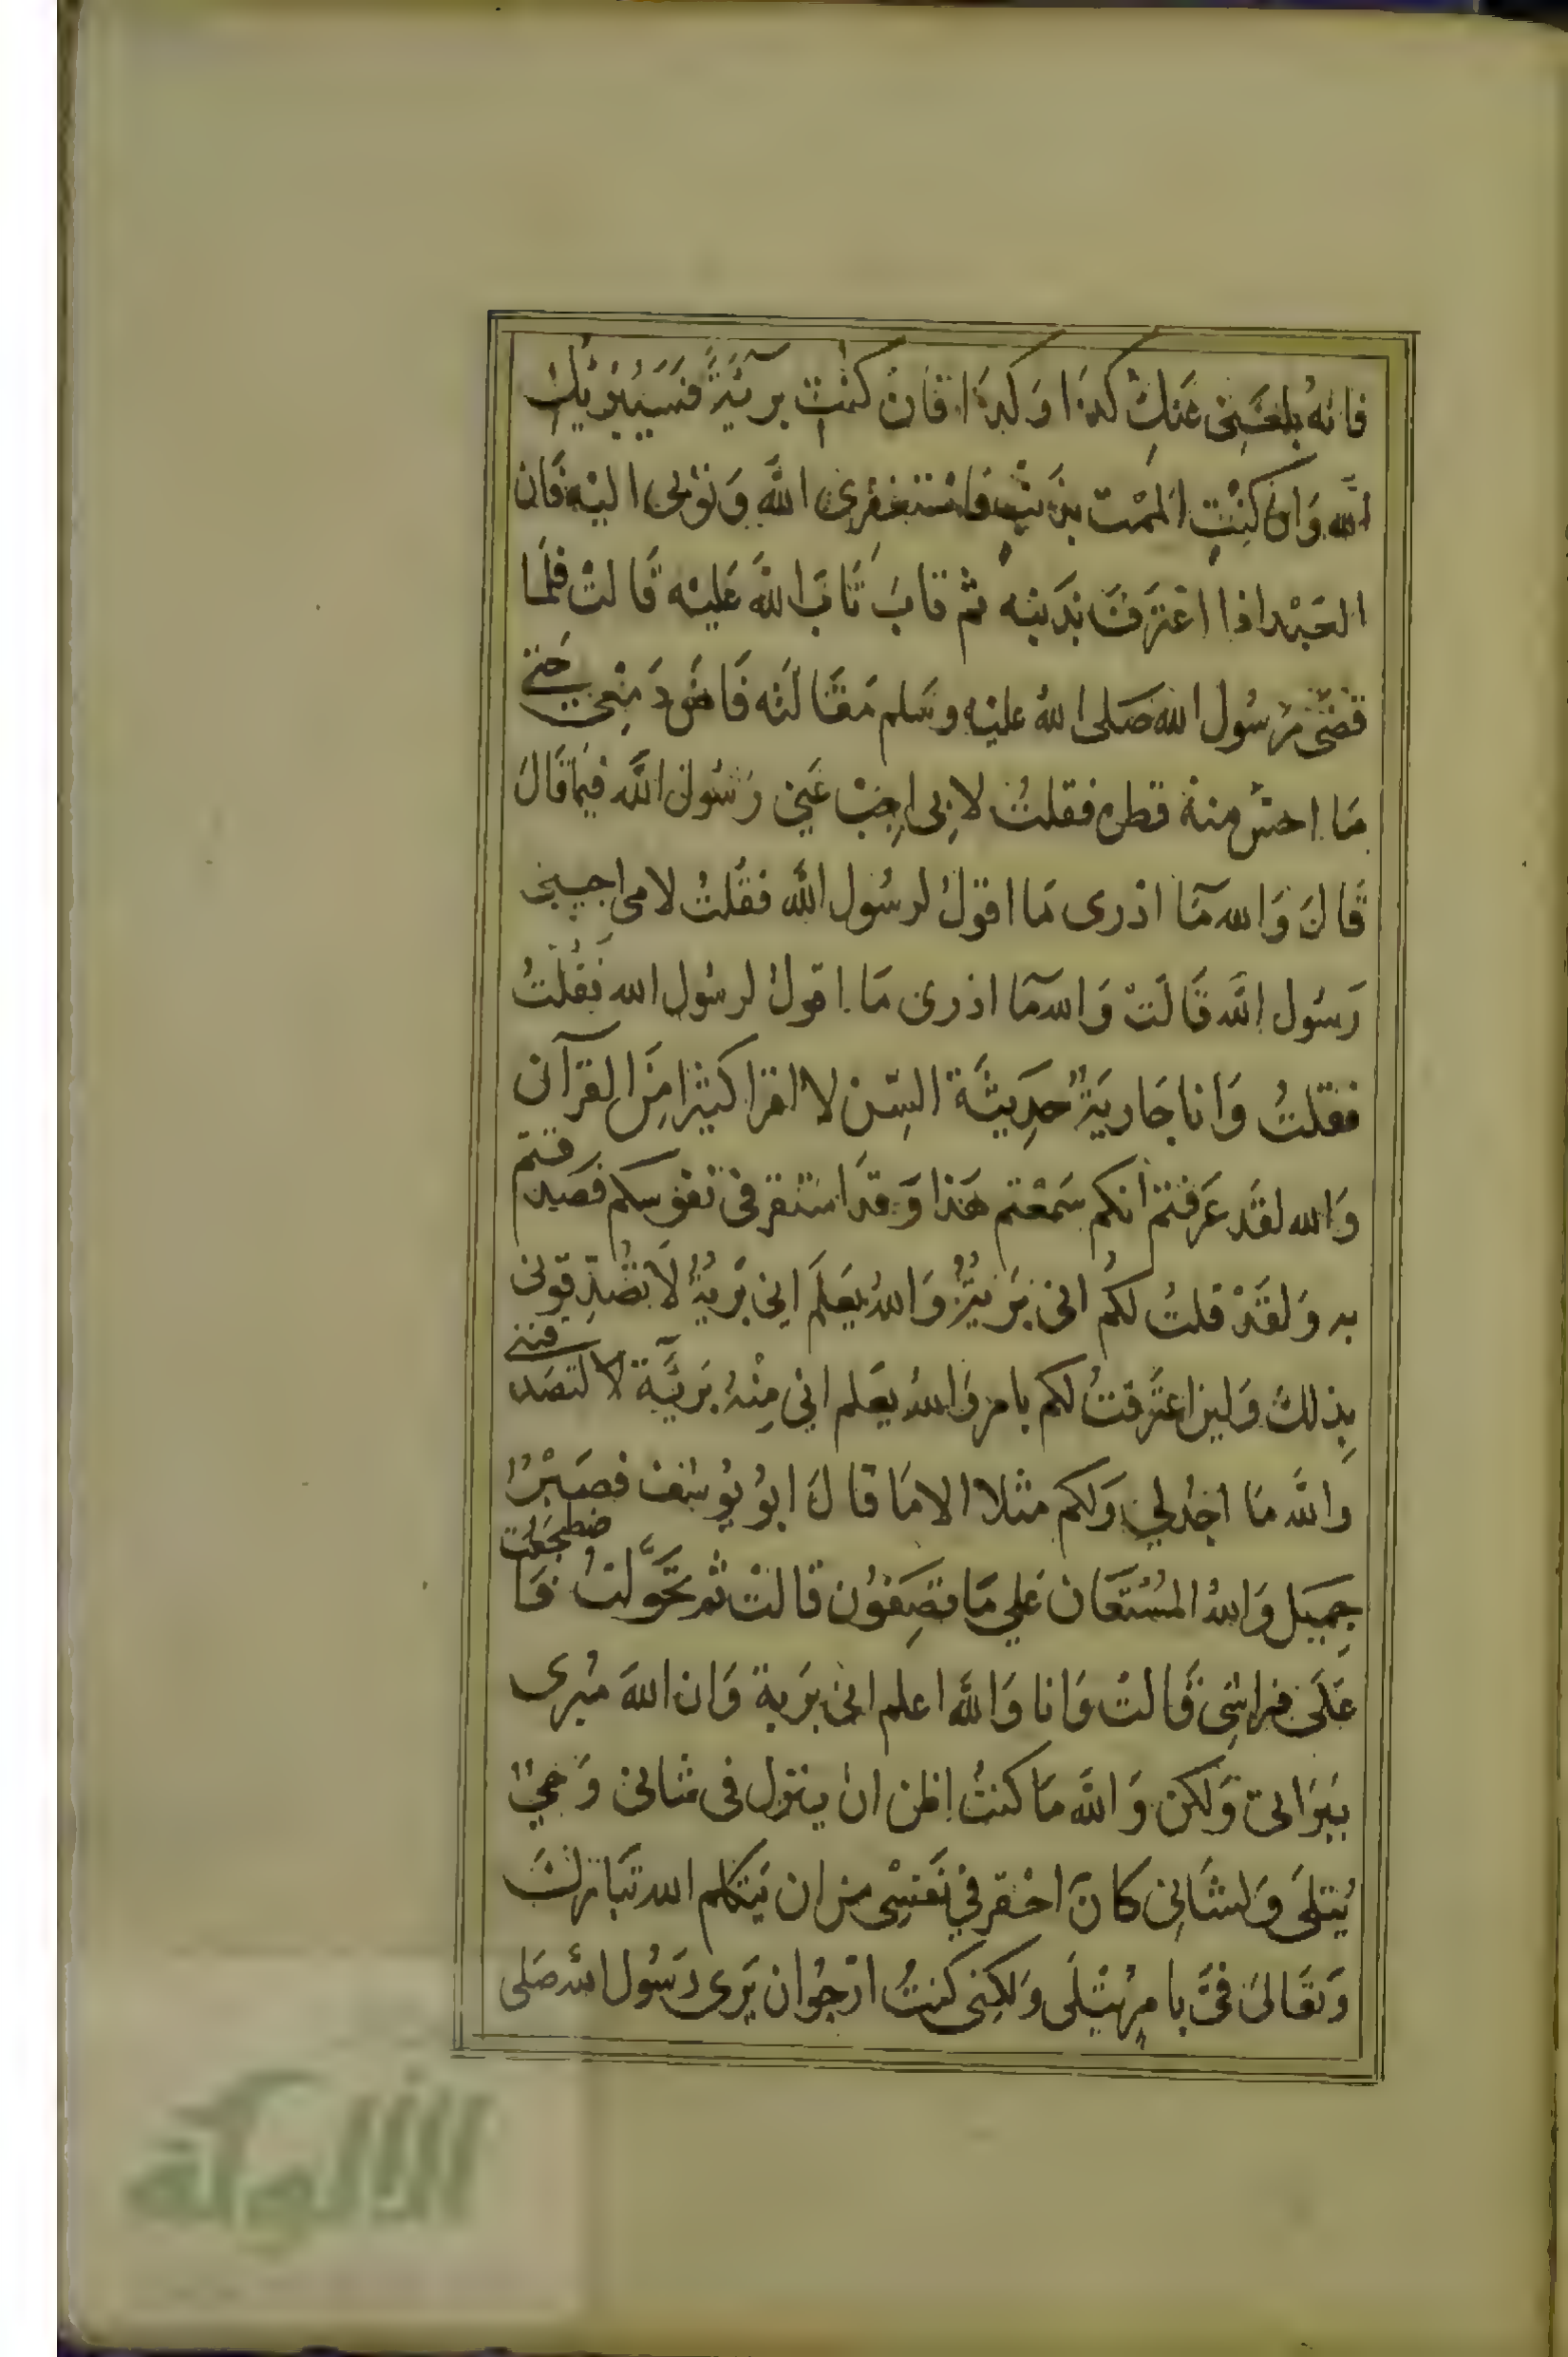 فانهُ بلغَنِى عَنكِ كذا وَكذَا فان كنتِ برٓئيةً فسَيُبَرئُكِ
الله وَان كنْتِ الممْت بذنبٍ فاسْتغفرى اللهَ وَتوُبى اليْهِ فَان
العَبْد اذا اعْترَفَ بذَنبه ثم تابَ تَابَ اللهُ عَليْه قَالتْ فلَما
قضَى رسُول الله صَلى اللهُ عليْه وسَلم مَقَالَته قَلصَ دَمْعِى حَتى
مَا احسُّ منهُ قطره فقلتُ لابِى اجِبْ عَنِى رَسُول الله فيمَا قَالَ
قَالَ وَالله مَآ ادْرى مَا اقولُ لرسُول الله فقُلتُ لامى اجيبِى
رَسُول الله قَالَتْ وَالله مَآ ادْرى مَا اقولُ لرسُول الله فَقُلْتُ
فقلتُ وَانا جَاريَةٌ حَدِيثَة السِّن لا اقرا كثيْرا مِنَ القرآن
وَالله لقَد عَرَفتُم انكم سَمعْتم هَذا وَقدَ استقر فى نفوسكم فصَدقتم
به وَلقَدْ قلتُ لكمُ انى بَريَّةٌ وَاللهُ يعَلَم اِنى بَريةٌ لَا تُصَدِّقونى
بِذلكَ وَلين اعتَرَفتُ لكم بامر وَاللهُ يعَلم انى مِنْهُ بَريَّة لا لتصَدقننى
وَاللهَ مَا اجدُ لِى وَلكم مثلا الا مَا قَالَ ابوُ يوُسُف فصَبْرٌ
جِميَل وَاللهُ المسُتعَان عَلى مَا تصِفوُن قالتْ ثم تحَوَّلتُ فَاضطجَعْت
عَلَى فراشِى قَالتْ وَانا وَالله اعلم انى بَرية وَان اللهَ مُبرى
ببَرَاتى وَلكن وَالله مَا كنتُ اظن ان ينزل فى شانى وَحىٌ
يُتلَى وَلشَانِى كَانَ احْقر فى نَفسِى من ان يَتكلم الله تبَارك
وَتعَالى فىَّ بامرٍ يُتْلَى وَلكِنى كنتُ ارْجوُ ان يَرى رَسُول الله صَلى
الألوكة